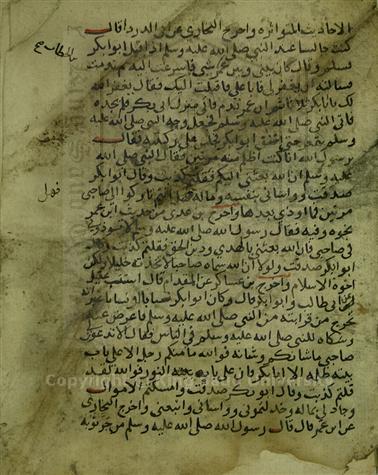 الاحاديث المتواترة واخرج البخاري عن ابي الدرداء قال
كنت جالسا عند النبي صلى الله عليه وسلم اذ اقبل ابو بكر
فسلم وقال كان بيني وبين عمر شي فاسرعت اليه ثم ندمت
فسالته ان يغفر لي فابا علي فاقبلت اليك فقال يغفر الله
لك يا ابا بكر ثلاثا ثم ان عمر ندم فاتى منزل ابي بكر فلم يجده
فاتى النبي صلى الله عليه وسلم فجعل وجه النبي صلى الله عليه
وسلم يتمعر حتى اشفق ابو بكر فجثى على ركبتيه فقال
يرسول الله انا كنت اظلم منه مرتين فقال النبي صلى الله
عليه وسلم ان الله بعثني اليكم فقلتم كذبت وقال ابو بكر
صدقت وواساني بنفسه وماله فهل انتم تاركوا لي صاحبي
مرتين فما اوذي بعدها واخرج بن عدي من حديث ابن عمر
نحوه وفيه فقال رسول الله صلى الله عليه وسلم لا تؤذوني
في صاحبي فان الله بعثني بالهدى ودين الحق فقلتم كذبت وقال
ابو بكر صدقت ولولا ان الله سماه صاحبا لاتخذته خليلا ولكن
اخوة الاسلام واخرج بن عساكر عن المقدام قال استب عقيل
بن ابي طالب وابو بكر قال وكان ابو بكر نسابا غير انه
تحرج من قرابته من النبي صلى الله عليه وسلم فاعرض عنه
وشكاه للنبي صلى الله عليه وسلم في الناس فقال الا تدعون
صاحبي ما شانكم وشانه فوالله ما منكم رجل الا على باب
بيته ظلمة الا ابا بكر فان على بابه النور فوالله لقد
قلتم كذبت وقال ابو بكر صدقت وامسكتم الاموال
وجاد لي بماله وخذلتموني وواساني واتبعني واخرج البخاري
عن ابن عمر قال قال رسول الله صلى الله عليه وسلم من جر ثوبه